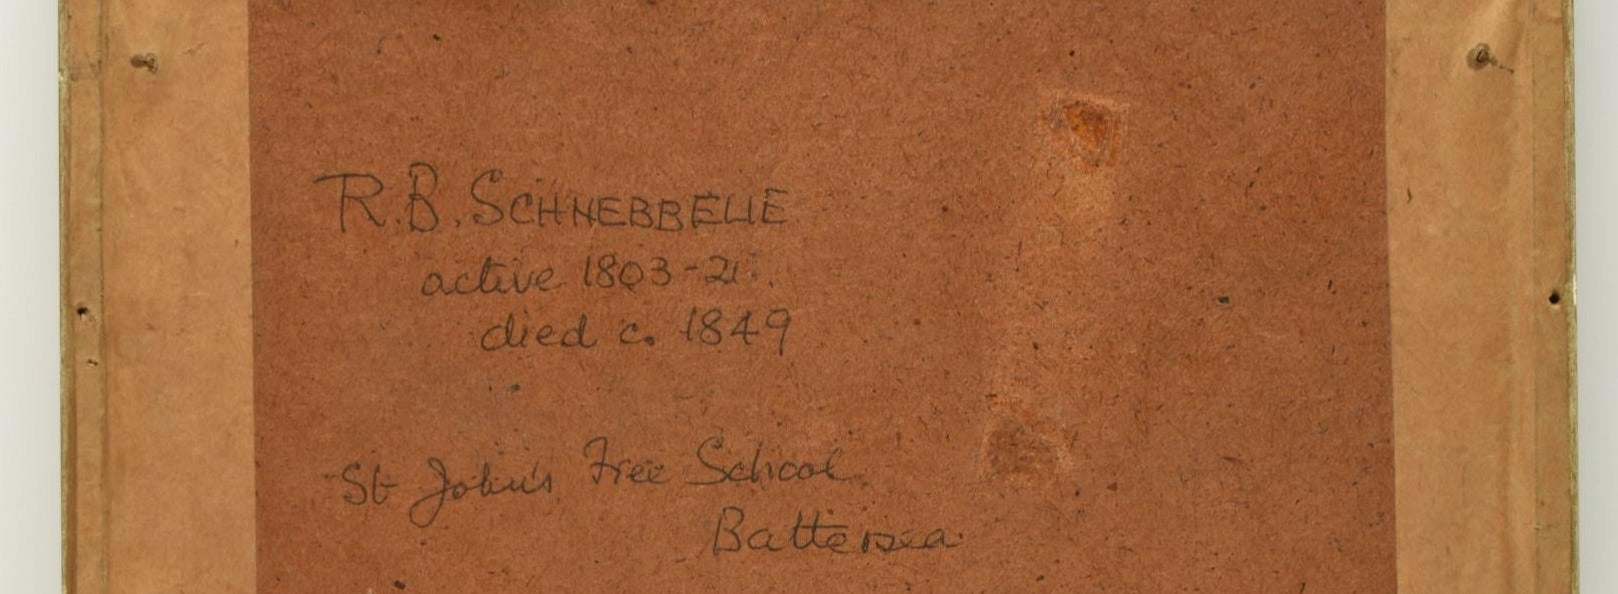 R.B. SCHNEBBELIE
active 1803-21.
died c. 1849
St John's Free School
Battersea